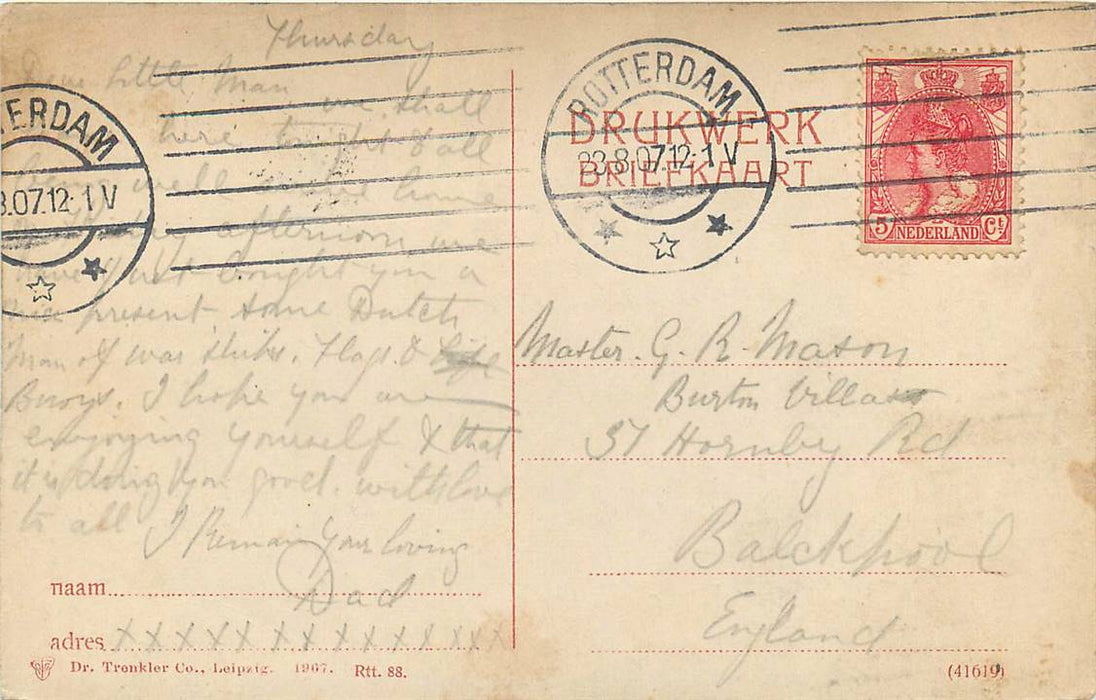 Thursday
Dear Little Man we shall
here tonight & all
being well home
afternoon we
have just bought you a
nice present some Dutch
Man of war ships. Flags & life
Buoys. I hope you are
enjoying yourself & that
it is doing you good. with love
to all I Remain Your loving
Dad
naam
adres x x x x x x x x x x x x x
Dr. Trenkler Co., Leipzig. 1907. Rtt. 88.
TERDAM
8.07.12-1 V
ROTTERDAM
23.8.07.12-1 V
DRUKWERK
BRIEFKAART
5 NEDERLAND Ct.
Master. G. R. Mason
Burton Villa
37 Hornby Rd
Balckpool
England
(41619)